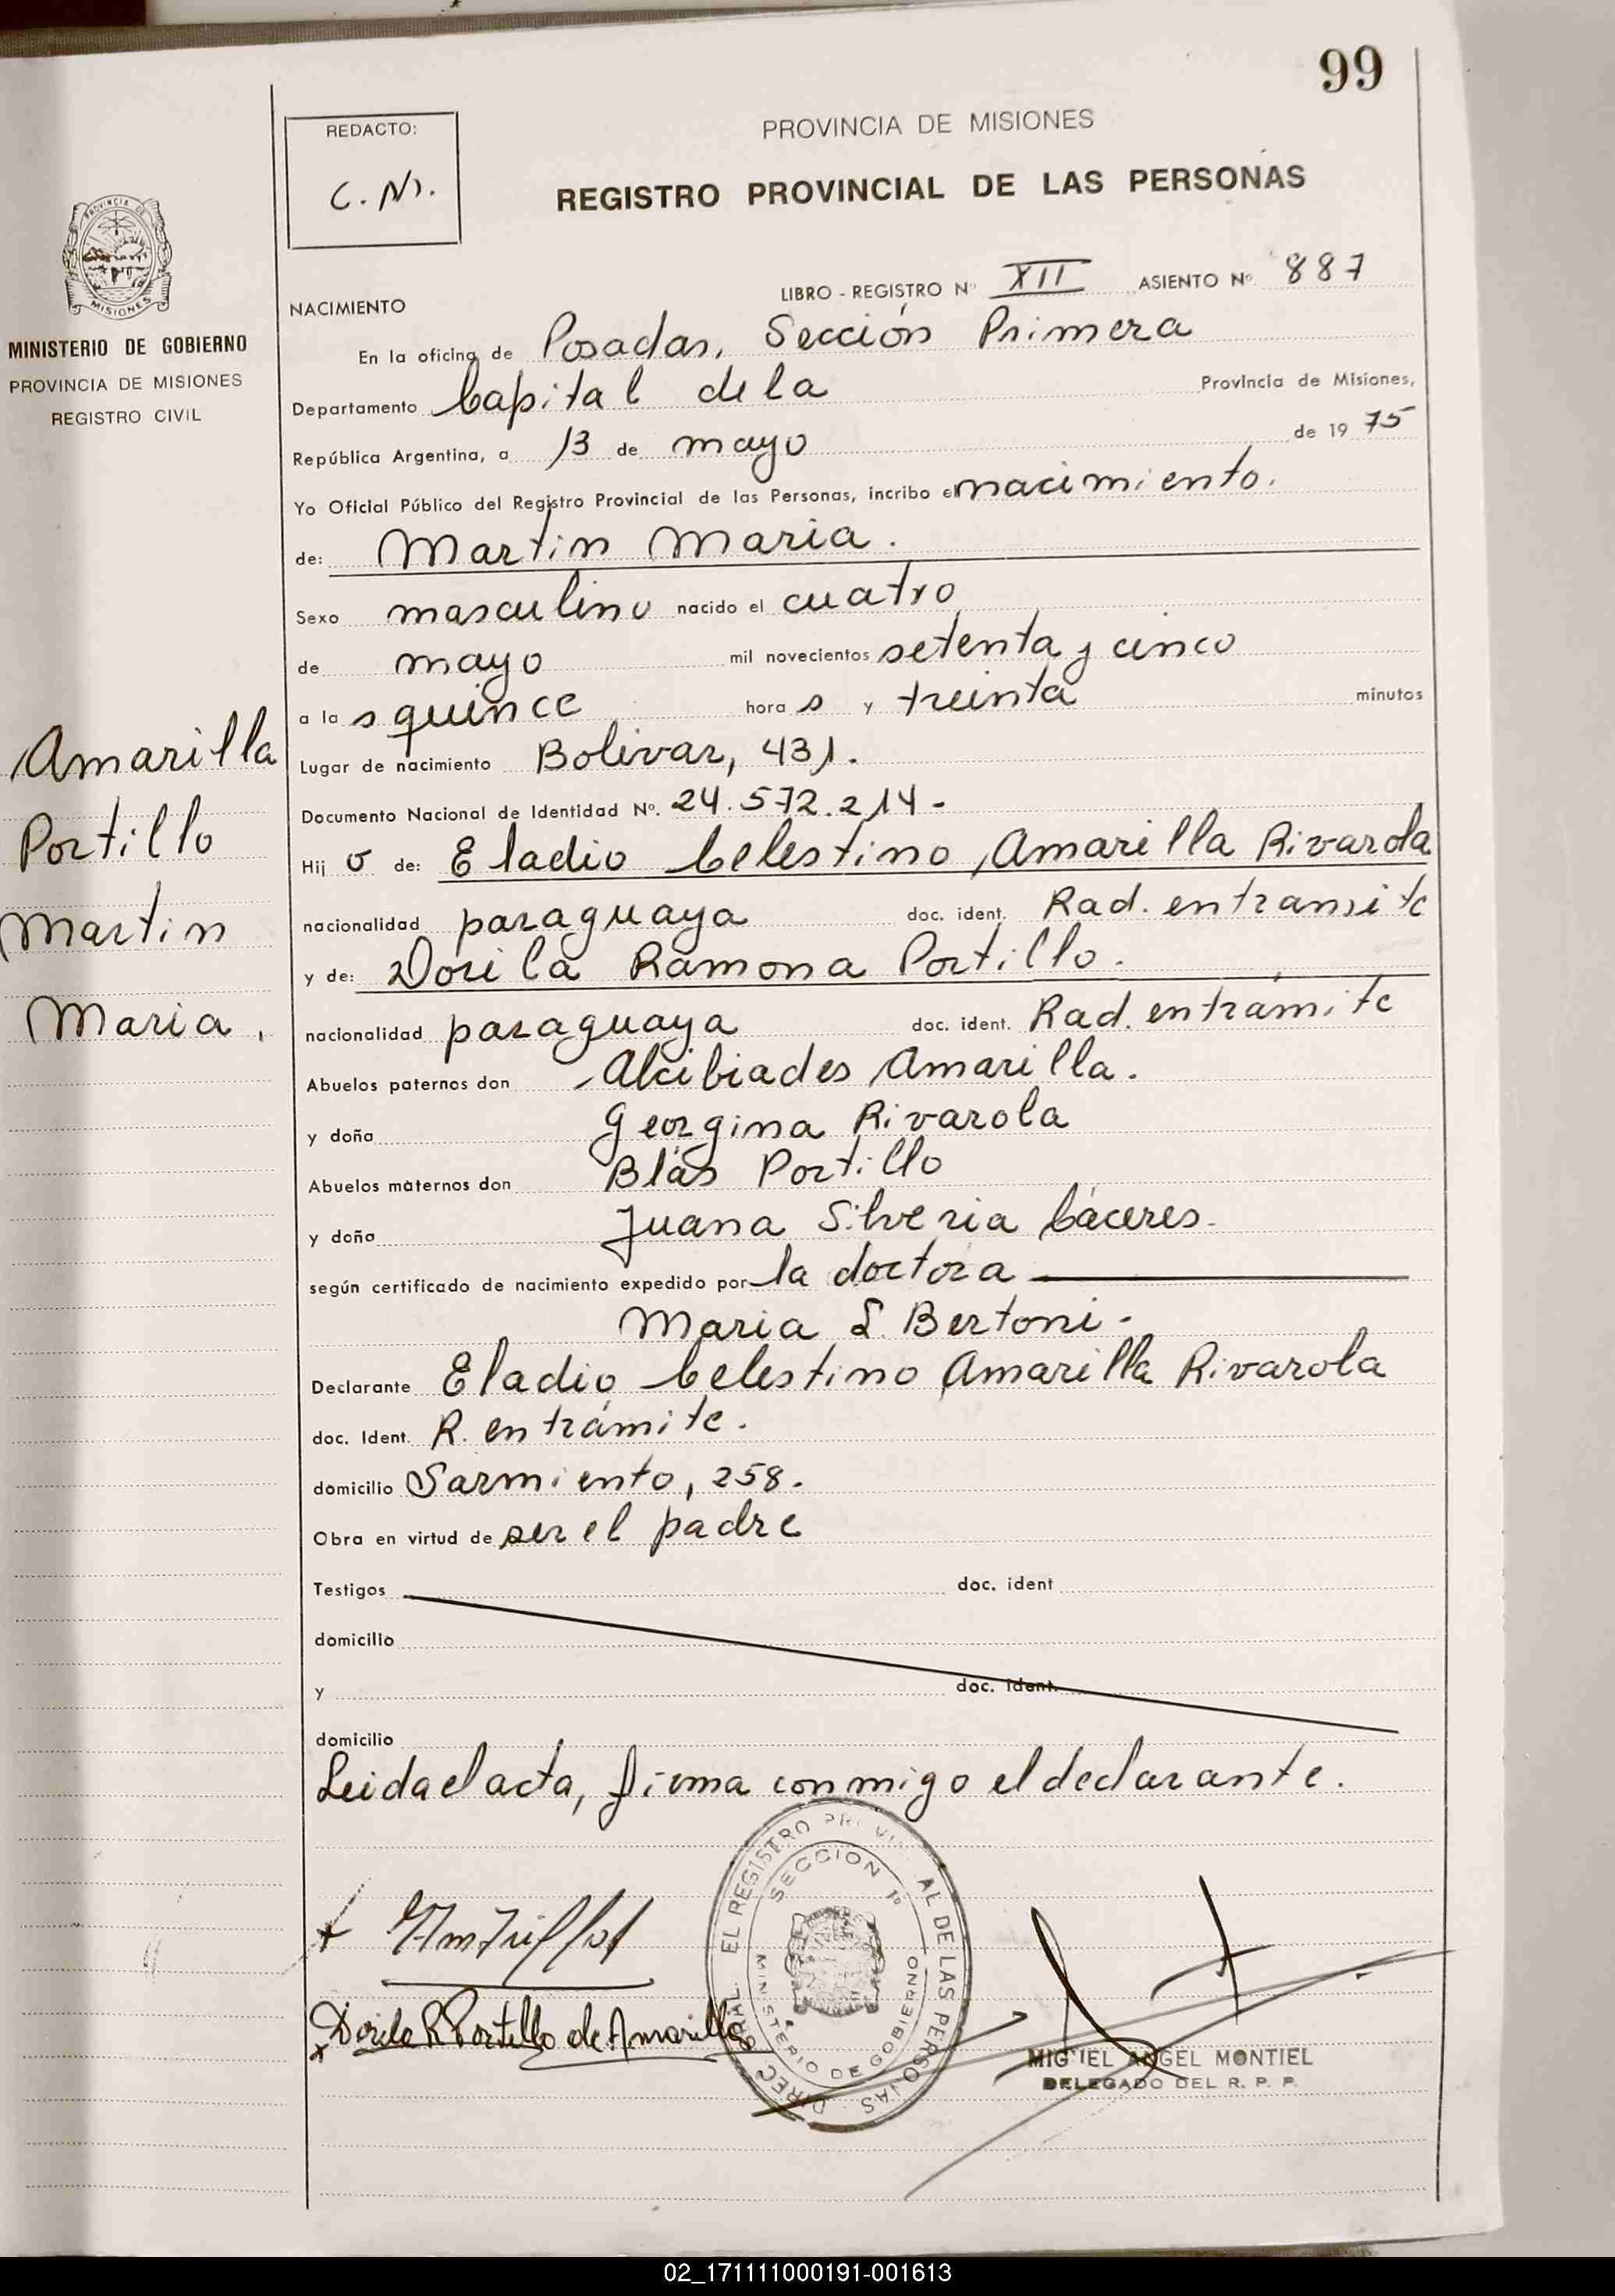 99
REDACTO:
C. M.
PROVINCIA DE MISIONES
REGISTRO PROVINCIAL DE LAS PERSONAS
PROVINCIA DE
MISIONES
MINISTERIO DE GOBIERNO
PROVINCIA DE MISIONES
REGISTRO CIVIL
LIBRO - REGISTRO Nº XII ASIENTO Nº 887
NACIMIENTO
En la oficina de Posadas, Sección Primera
Departamento Capital de la Provincia de Misiones,
República Argentina, a 13 de mayo de 1975
Yo Oficial Público del Registro Provincial de las Personas, incribo el nacimiento.
de: Martin Maria.
Sexo masculino nacido el cuatro
de mayo mil novecientos setenta y cinco
a la s quince hora s y treinta minutos
Lugar de nacimiento Bolivar, 431.
Documento Nacional de Identidad Nº. 24.572.214-
Hij o de: Eladio Celestino Amarilla Rivarola
nacionalidad paraguaya doc. ident. Rad. en tramite
y de: Dorila Ramona Portillo.
nacionalidad paraguaya doc. ident. Rad. en trámite
Abuelos paternos don Alcibiades Amarilla.
y doña Georgina Rivarola
Abuelos maternos don Blás Portillo
y doña Juana Silveria Cáceres-
según certificado de nacimiento expedido por la doctora
Maria L. Bertoni-
Declarante Eladio Celestino Amarilla Rivarola
doc. Ident. R. en trámite.
domicilio Sarmiento, 258.
Obra en virtud de ser el padre
Testigos doc. ident
domicilio
y doc. ident.
domicilio
Leida el acta, firma conmigo el declarante.
Amarilla
Portillo
Martin
Maria.
Dorila R Portillo de Amarilla
DIREC GRAL. EL REGISTRO PROVINCIAL DE LAS PERSONAS
SECCION 1º
MINISTERIO DE GOBIERNO
MIGUEL ANGEL MONTIEL
DELEGADO DEL R. P. P.
02_171111000191-001613